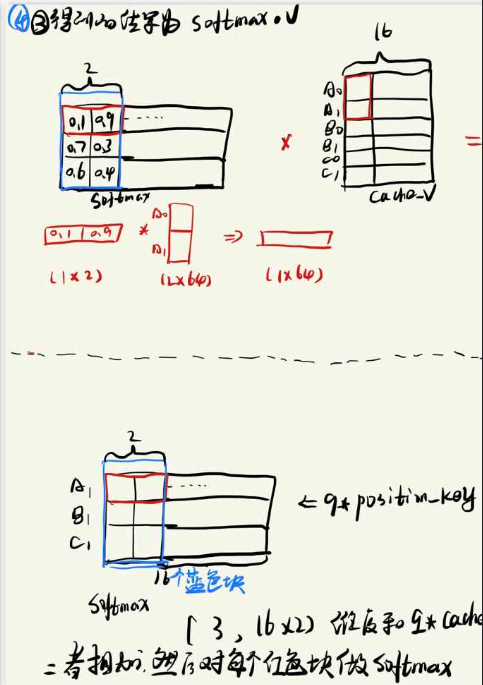 ④ ③得到的结果为 softmax·V
2
16
0.1 0.9 ......
0.7 0.3
0.6 0.4
softmax
*
A0
A1
B0
B1
C0
C1
cache_V
=
0.1 0.9 * A0 A1 ⇒
(1×2) (2×64) (1×64)
2
A1
B1
C1
......
← q* position_key
16个蓝色块
softmax
[3, 16×2) 维度和 q* cache
二者相加，然后对每个红色块做 softmax